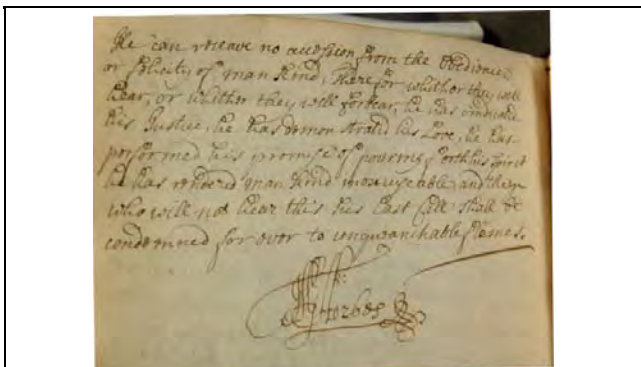 He can receave no accession from the Obedience
or folicity of man kind, Therefor whether they will
hear, or whether they will forbear, he has vindicate
his Justice, he has demonstratid his Love, he has
performed his promise of pouring forth his spirit
he has rendered man kind inexcuseable, and they
who will not hear this his Last Call shall be
condemned for ever to unqueanchable flames.
Forbes